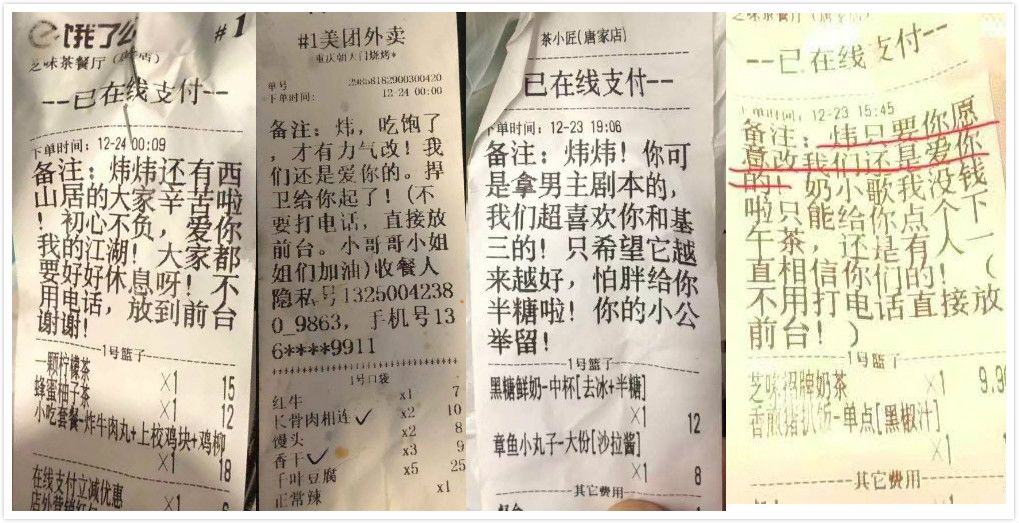 饿了么
#1
芝味茶餐厅
--已在线支付--
下单时间: 12-24 00:09
备注: 炜炜还有西
山居的大家辛苦啦
! 初心不负, 爱你
我的江湖! 大家都
要好好休息呀! 不
用电话, 放到前台
谢谢!
1号篮子
一颗柠檬茶 x1 15
蜂蜜柚子茶 x1 12
小吃套餐-炸牛肉丸+上校鸡块+鸡柳
x1 18
在线支付立减优惠
#1美团外卖
重庆朝天门烧烤*
单号 29858182900300420
下单时间: 12-24 00:00
备注: 炜, 吃饱了
, 才有力气改! 我
们还是爱你的。捍
卫给你起了! (不
要打电话, 直接放
前台。小哥哥小姐
姐们加油) 收餐人
隐私号1325004238
0_9863, 手机号13
6****9911
1号口袋
红牛 x1 7
长骨肉相连 x2 10
馒头 x2 8
香干 x3 9
千叶豆腐 x5 25
正常辣 x1
茶小匠(唐家店)
已在线支付--
下单时间: 12-23 19:06
备注: 炜炜! 你可
是拿男主剧本的,
我们超喜欢你和基
三的! 只希望它越
来越好, 怕胖给你
半糖啦! 你的小公
举留!
1号篮子
黑糖鲜奶-中杯[去冰+半糖]
x1 12
章鱼小丸子-大份[沙拉酱]
x1 8
其它费用
--已在线支付--
下单时间: 12-23 15:45
备注: 炜只要你愿
意改我们还是爱你
的! 奶小歌我没钱
啦只能给你点个下
午茶, 还是有人一
直相信你们的! (
不用打电话直接放
前台! )
1号篮子
芝味招牌奶茶 x1 9.90
香煎猪扒饭-单点[黑椒汁]
x1
其它费用